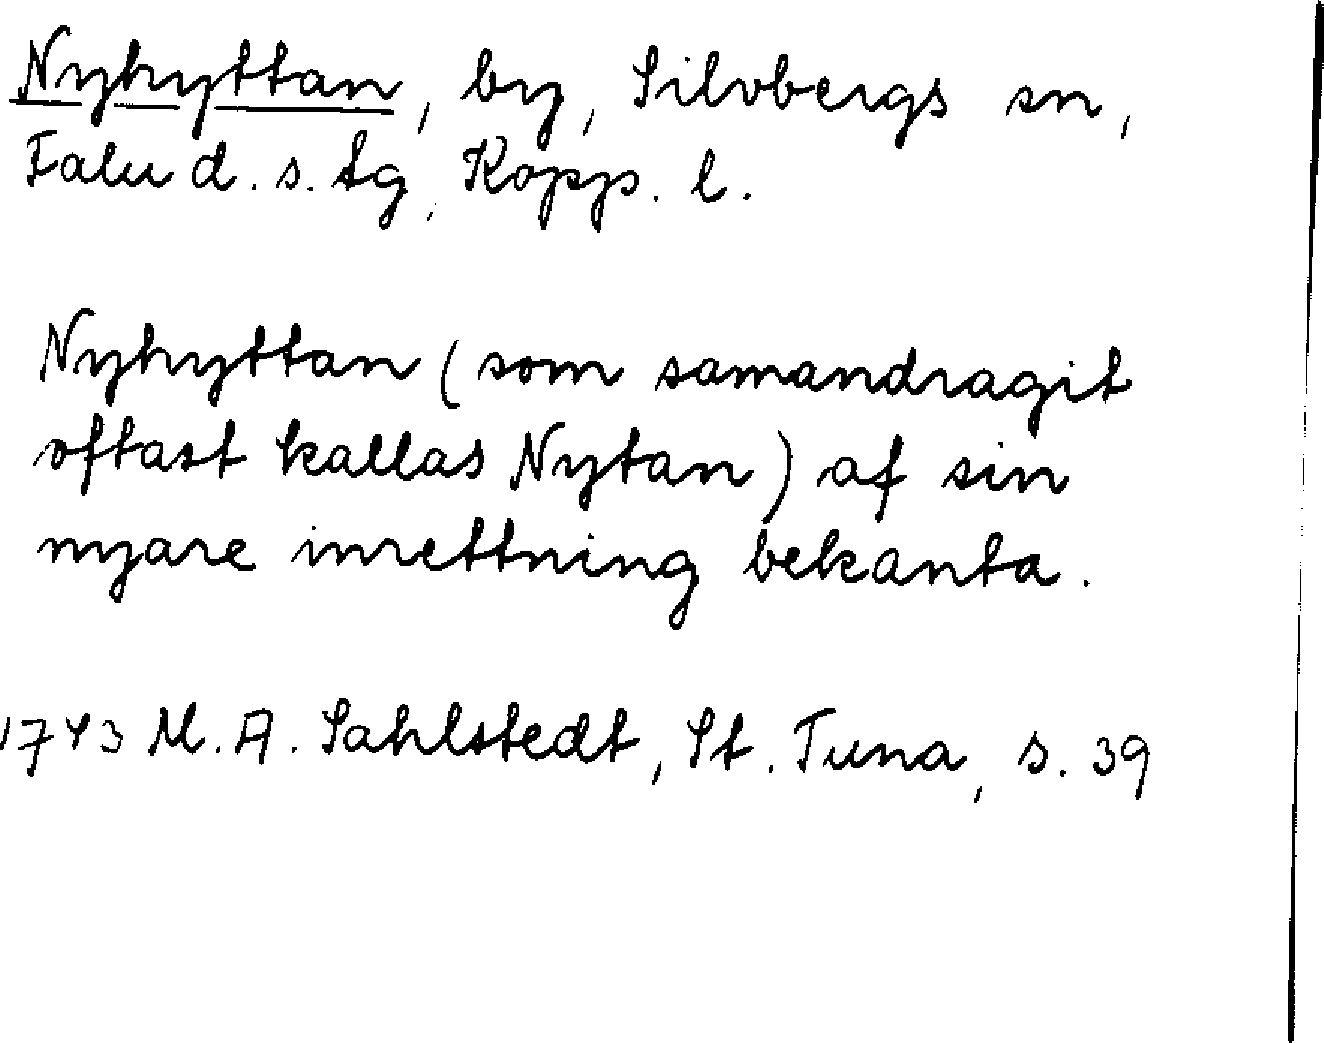 Nyhyttan, by, Silvbergs sn,
Falu d. s. tg, Kopp. l.
Nyhyttan (som samandragit
oftast kallas Nytan) af sin
nyare inrettning bekanta.
1743 M. A. Sahlstedt, St. Tuna, s. 39